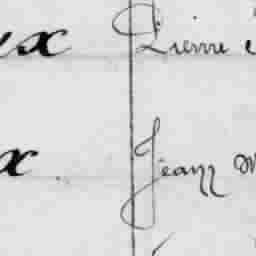 ux Pierre
x Jean